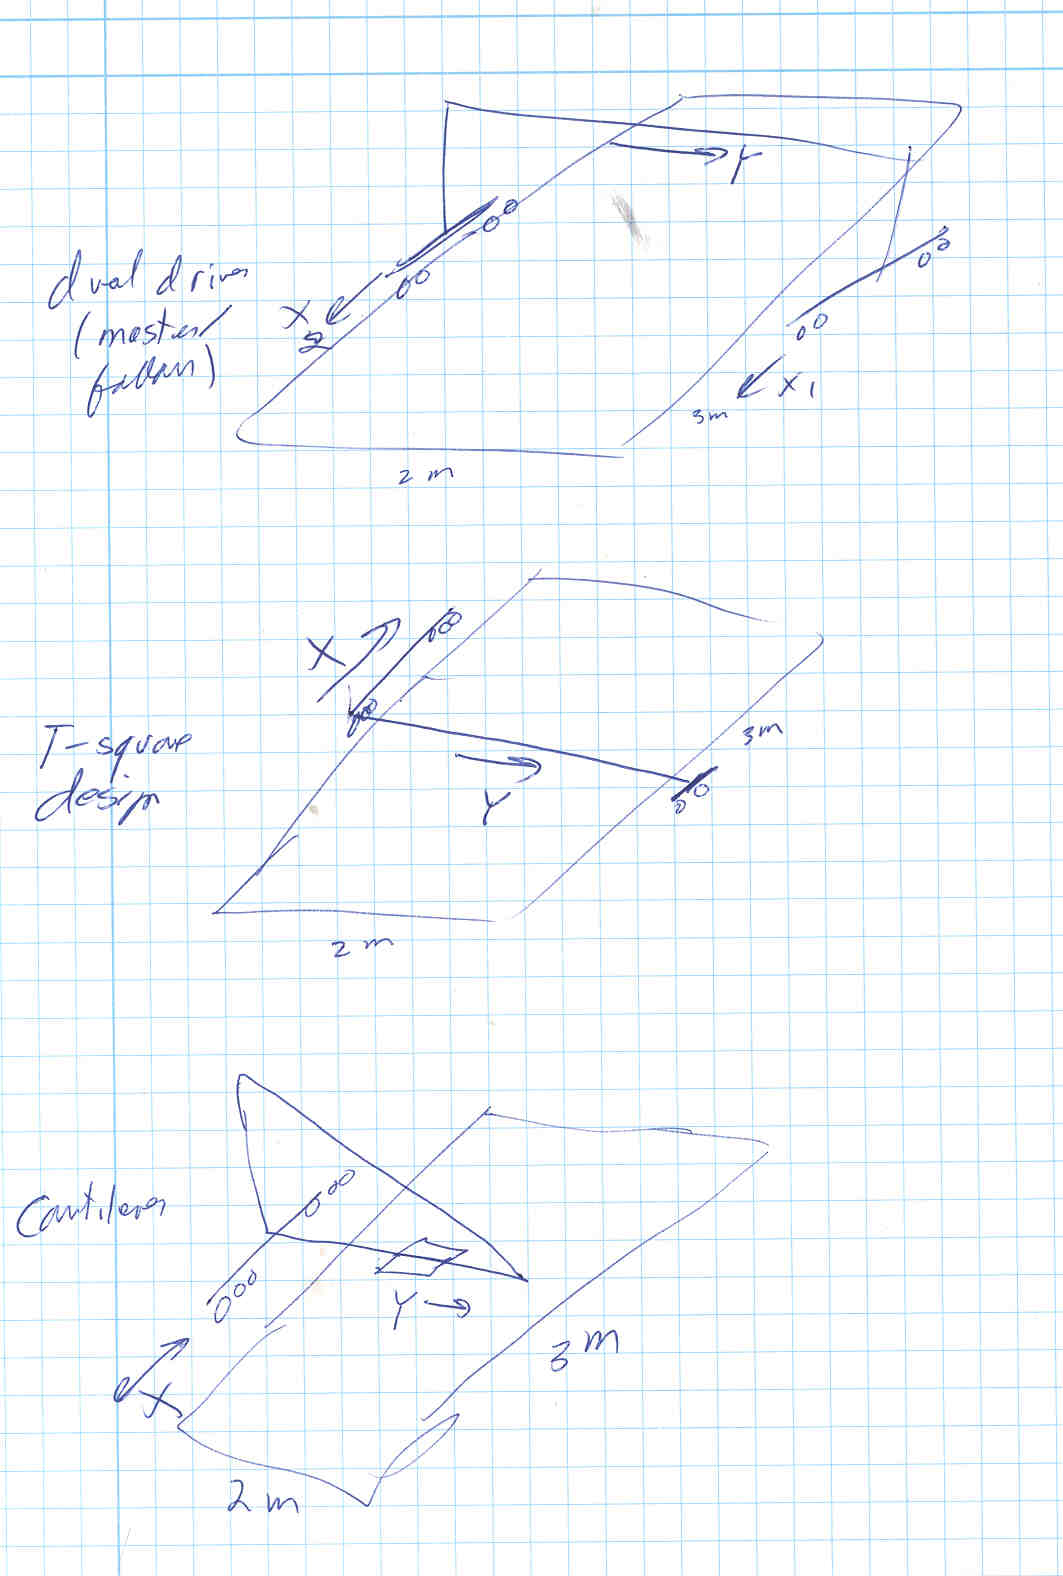 Y
dual drive
(master/
follow)
X
2
X1
3m
2 m
X
T-square
design
3m
Y
2 m
Cantilever
Y →
X
3m
2 m